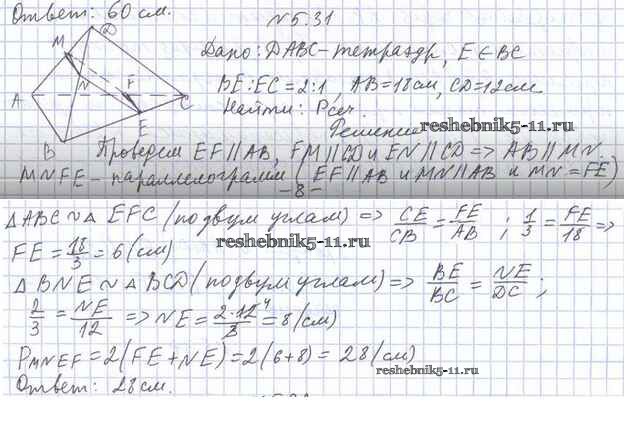 Ответ: 60 см.
№5.31
Дано: DABC - тетраэдр, E ∈ BC
BE:EC = 2:1, AB = 18 см, CD = 12 см.
Найти: Pсеч.
Решение
reshebnik5-11.ru
D
M
N
F
A
C
E
B
Проведем EF∥AB, FM∥CD и EN∥CD => AB∥MN.
MNFE - параллелограмм (EF∥AB и MN∥AB и MN = FE)
-8-
△ABC ~ △EFC (по двум углам) => CE/CB = FE/AB ; 1/3 = FE/18 =>
reshebnik5-11.ru
FE = 18/3 = 6 (см)
△BNE ~ △BCD (по двум углам) => BE/BC = NE/DC ;
2/3 = NE/12 => NE = 2·12⁴/3 = 8 (см)
PMNEF = 2(FE + NE) = 2(6+8) = 28 (см)
reshebnik5-11.ru
Ответ: 28 см.